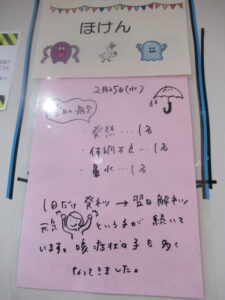 ほけん
2月25日(水)
今日の病気
・発熱…1名
・体調不良…1名
・鼻水…1名
1日だけ発ネツ → 翌日解ネツ
元気 という子が続いて
います。咳症状の子も多く
なってきました。